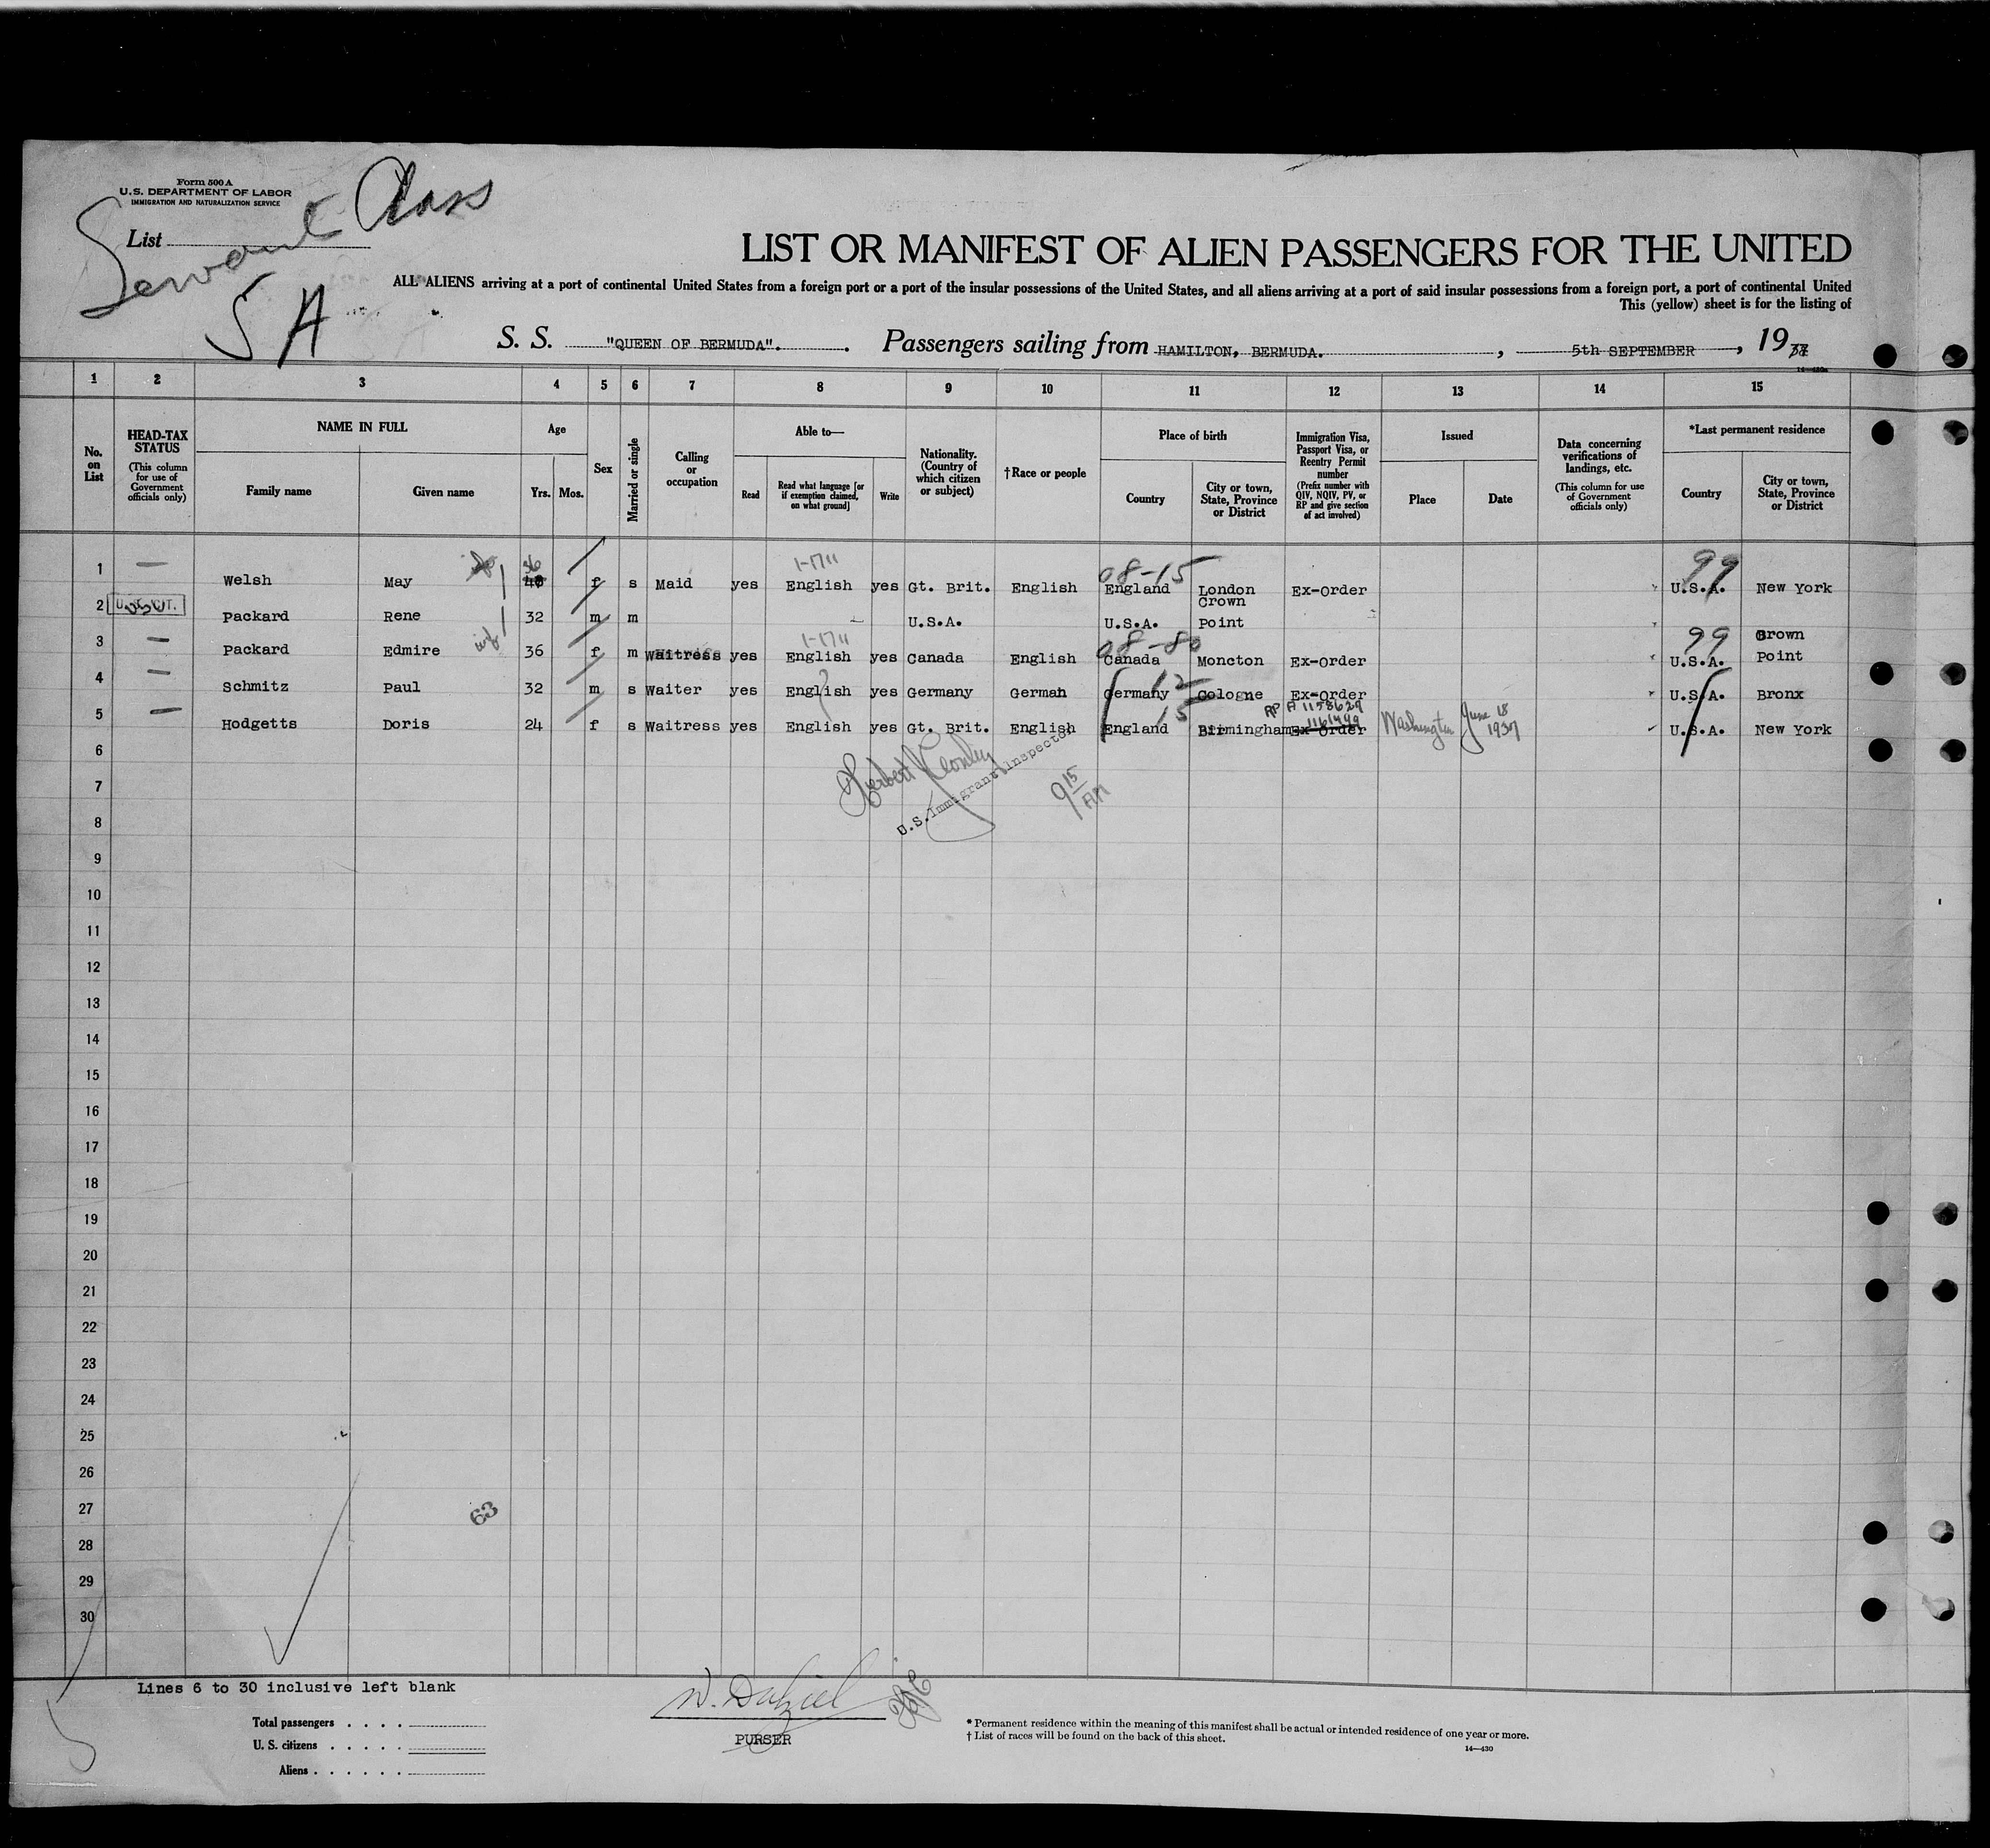 Form 500 A
U.S. DEPARTMENT OF LABOR
IMMIGRATION AND NATURALIZATION SERVICE
Servants Class
List
5 A
LIST OR MANIFEST OF ALIEN PASSENGERS FOR THE UNITED
ALL ALIENS arriving at a port of continental United States from a foreign port or a port of the insular possessions of the United States, and all aliens arriving at a port of said insular possessions from a foreign port, a port of continental United
This (yellow) sheet is for the listing of
S. S. "QUEEN OF BERMUDA". Passengers sailing from HAMILTON, BERMUDA. , 5th SEPTEMBER , 1937
1 2 3 4 5 6 7 8 9 10 11 12 13 14 15
No. on List
HEAD-TAX STATUS (This column for use of Government officials only)
NAME IN FULL
Family name Given name
Age
Yrs. Mos.
Sex
Married or single
Calling or occupation
Able to—
Read Read what language [or if exemption claimed, on what ground] Write
Nationality. (Country of which citizen or subject)
†Race or people
Place of birth
Country City or town, State, Province or District
Immigration Visa, Passport Visa, or Reentry Permit number (Prefix number with QIV, NQIV, PV, or RP and give section of act involved)
Issued
Place Date
Data concerning verifications of landings, etc. (This column for use of Government officials only)
*Last permanent residence
Country City or town, State, Province or District
36 1-1711 08-15 99
1 — Welsh May 40 f s Maid yes English yes Gt. Brit. English England London Ex-Order U.S.A. New York
2 Packard Rene 32 m m U.S.A. U.S.A. Crown Point
1-1711 08-80 99
3 — Packard Edmire 36 f m Waitress yes English yes Canada English Canada Moncton Ex-Order U.S.A. Crown Point
12
4 — Schmitz Paul 32 m s Waiter yes English yes Germany German Germany Cologne Ex-Order U.S.A. Bronx
15 RP A 1158629
1161499
5 — Hodgetts Doris 24 f s Waitress yes English yes Gt. Brit. English England Birmingham Ex-Order Washington June 18 1937 U.S.A. New York
6
U.S. Immigrant Inspector
9 15 AM
7
8
9
10
11
12
13
14
15
16
17
18
19
20
21
22
23
24
25
26
27
63
28
29
30
Lines 6 to 30 inclusive left blank
Total passengers . . . .
U. S. citizens . . . . .
Aliens . . . . . .
W. Dalziel
PURSER
* Permanent residence within the meaning of this manifest shall be actual or intended residence of one year or more.
† List of races will be found on the back of this sheet.
14—430